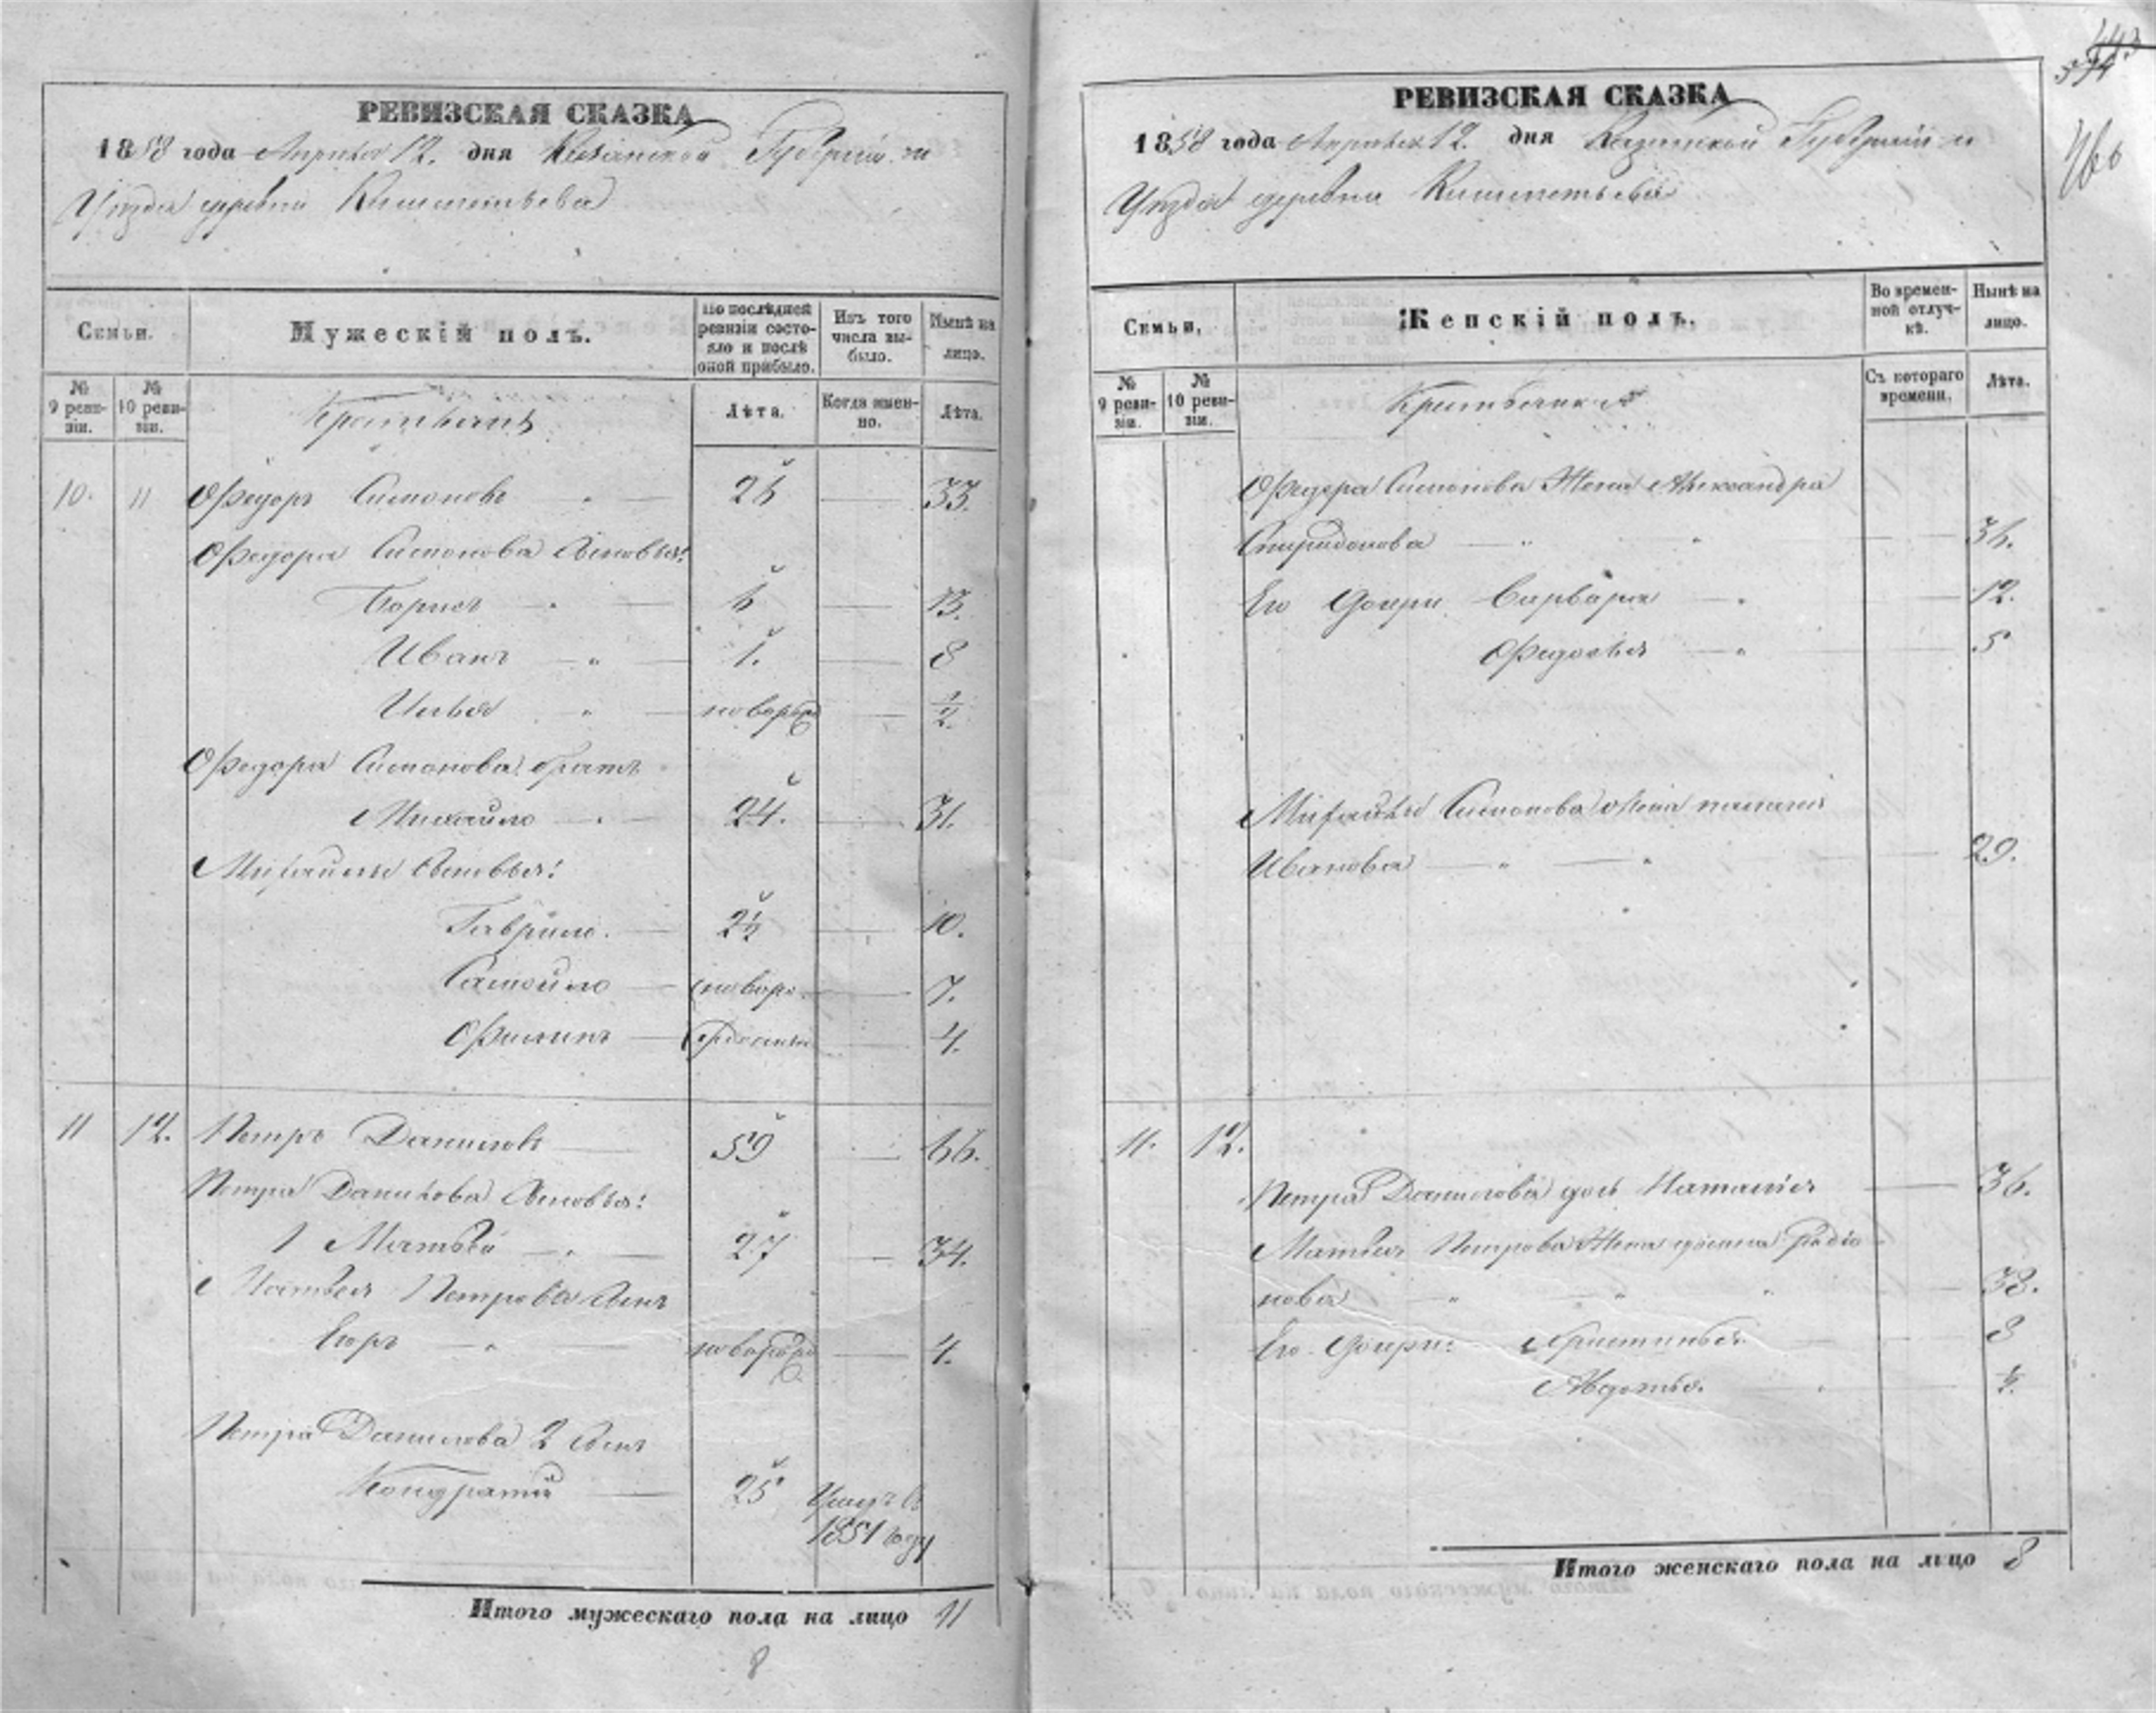 РЕВИЗСКАЯ СКАЗКА
1858 года Апреля 12. дня Казанской Губернии и
Уезда деревни
Семьи.
Мужескій полъ.
По послѣдней ревизіи состояло и послѣ оной прибыло.
Изъ того числа выбыло.
Нынѣ на лицо.
№ 9 ревизіи.
№ 10 ревизіи.
Крестьянъ
Лѣта.
Когда именно.
Лѣта.
10. 11 Федоръ Симоновъ 26 33.
Федора Симонова сыновья:
Борисъ 6 13.
Иванъ 1. 8
Илья новорожд 1/2
Федора Симонова братъ
Михайло 24. 31.
Михайлы сыновья:
Гаврило. 2½ 10.
Самойло новоро 7.
Филипъ жденны 4.
11 12. Петръ Даниловъ 59 66.
Петра Данилова сыновья:
1 Матвей 27 34.
Матвея Петрова сынъ
Егоръ новорожд 4.
Петра Данилова 2 сынъ
Кондратий 25 Умеръ въ
1851 году
Итого мужескаго пола на лицо 11
8
РЕВИЗСКАЯ СКАЗКА
1858 года Апреля 12. дня Казанской Губернии и
Уезда деревни
766
Семьи,
Женскій полъ.
Во временной отлучкѣ.
Нынѣ на лицо.
№ 9 ревизіи.
№ 10 ревизіи.
Крестьянка
Съ котораго времени.
Лѣта.
Федора Симонова Жена Александра
Спиридонова 36.
Его Дочери Варвара 12.
Федосья 5
Михайлы Симонова жена
Иванова 29.
11. 12.
Петра Данилова дочь Наталья 36.
Матвея Петрова Жена Родио
нова 38.
Его Дочери: Христинья 8
Авдотья. ½.
Итого женскаго пола на лицо 8